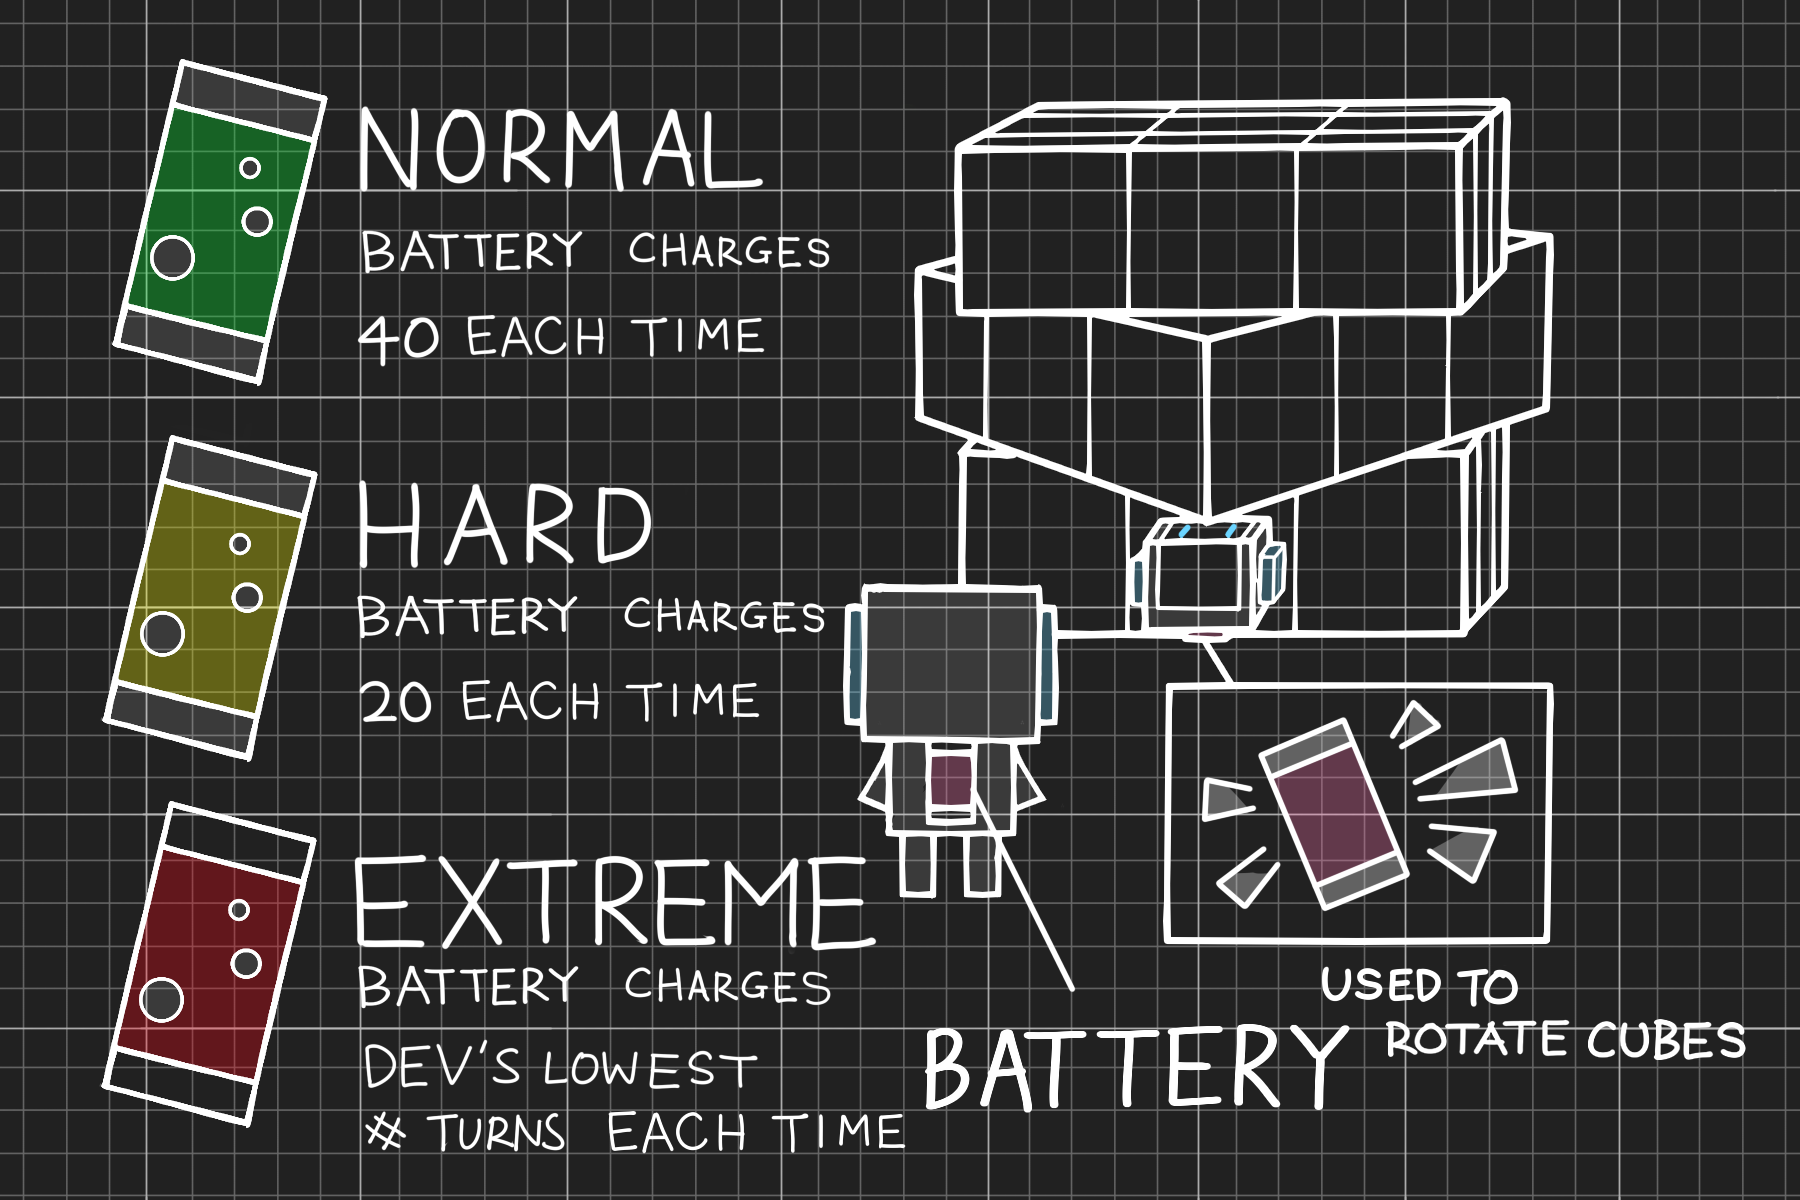 NORMAL
BATTERY CHARGES
40 EACH TIME
HARD
BATTERY CHARGES
20 EACH TIME
EXTREME
BATTERY CHARGES
DEV'S LOWEST
# TURNS EACH TIME
BATTERY
USED TO
ROTATE CUBES